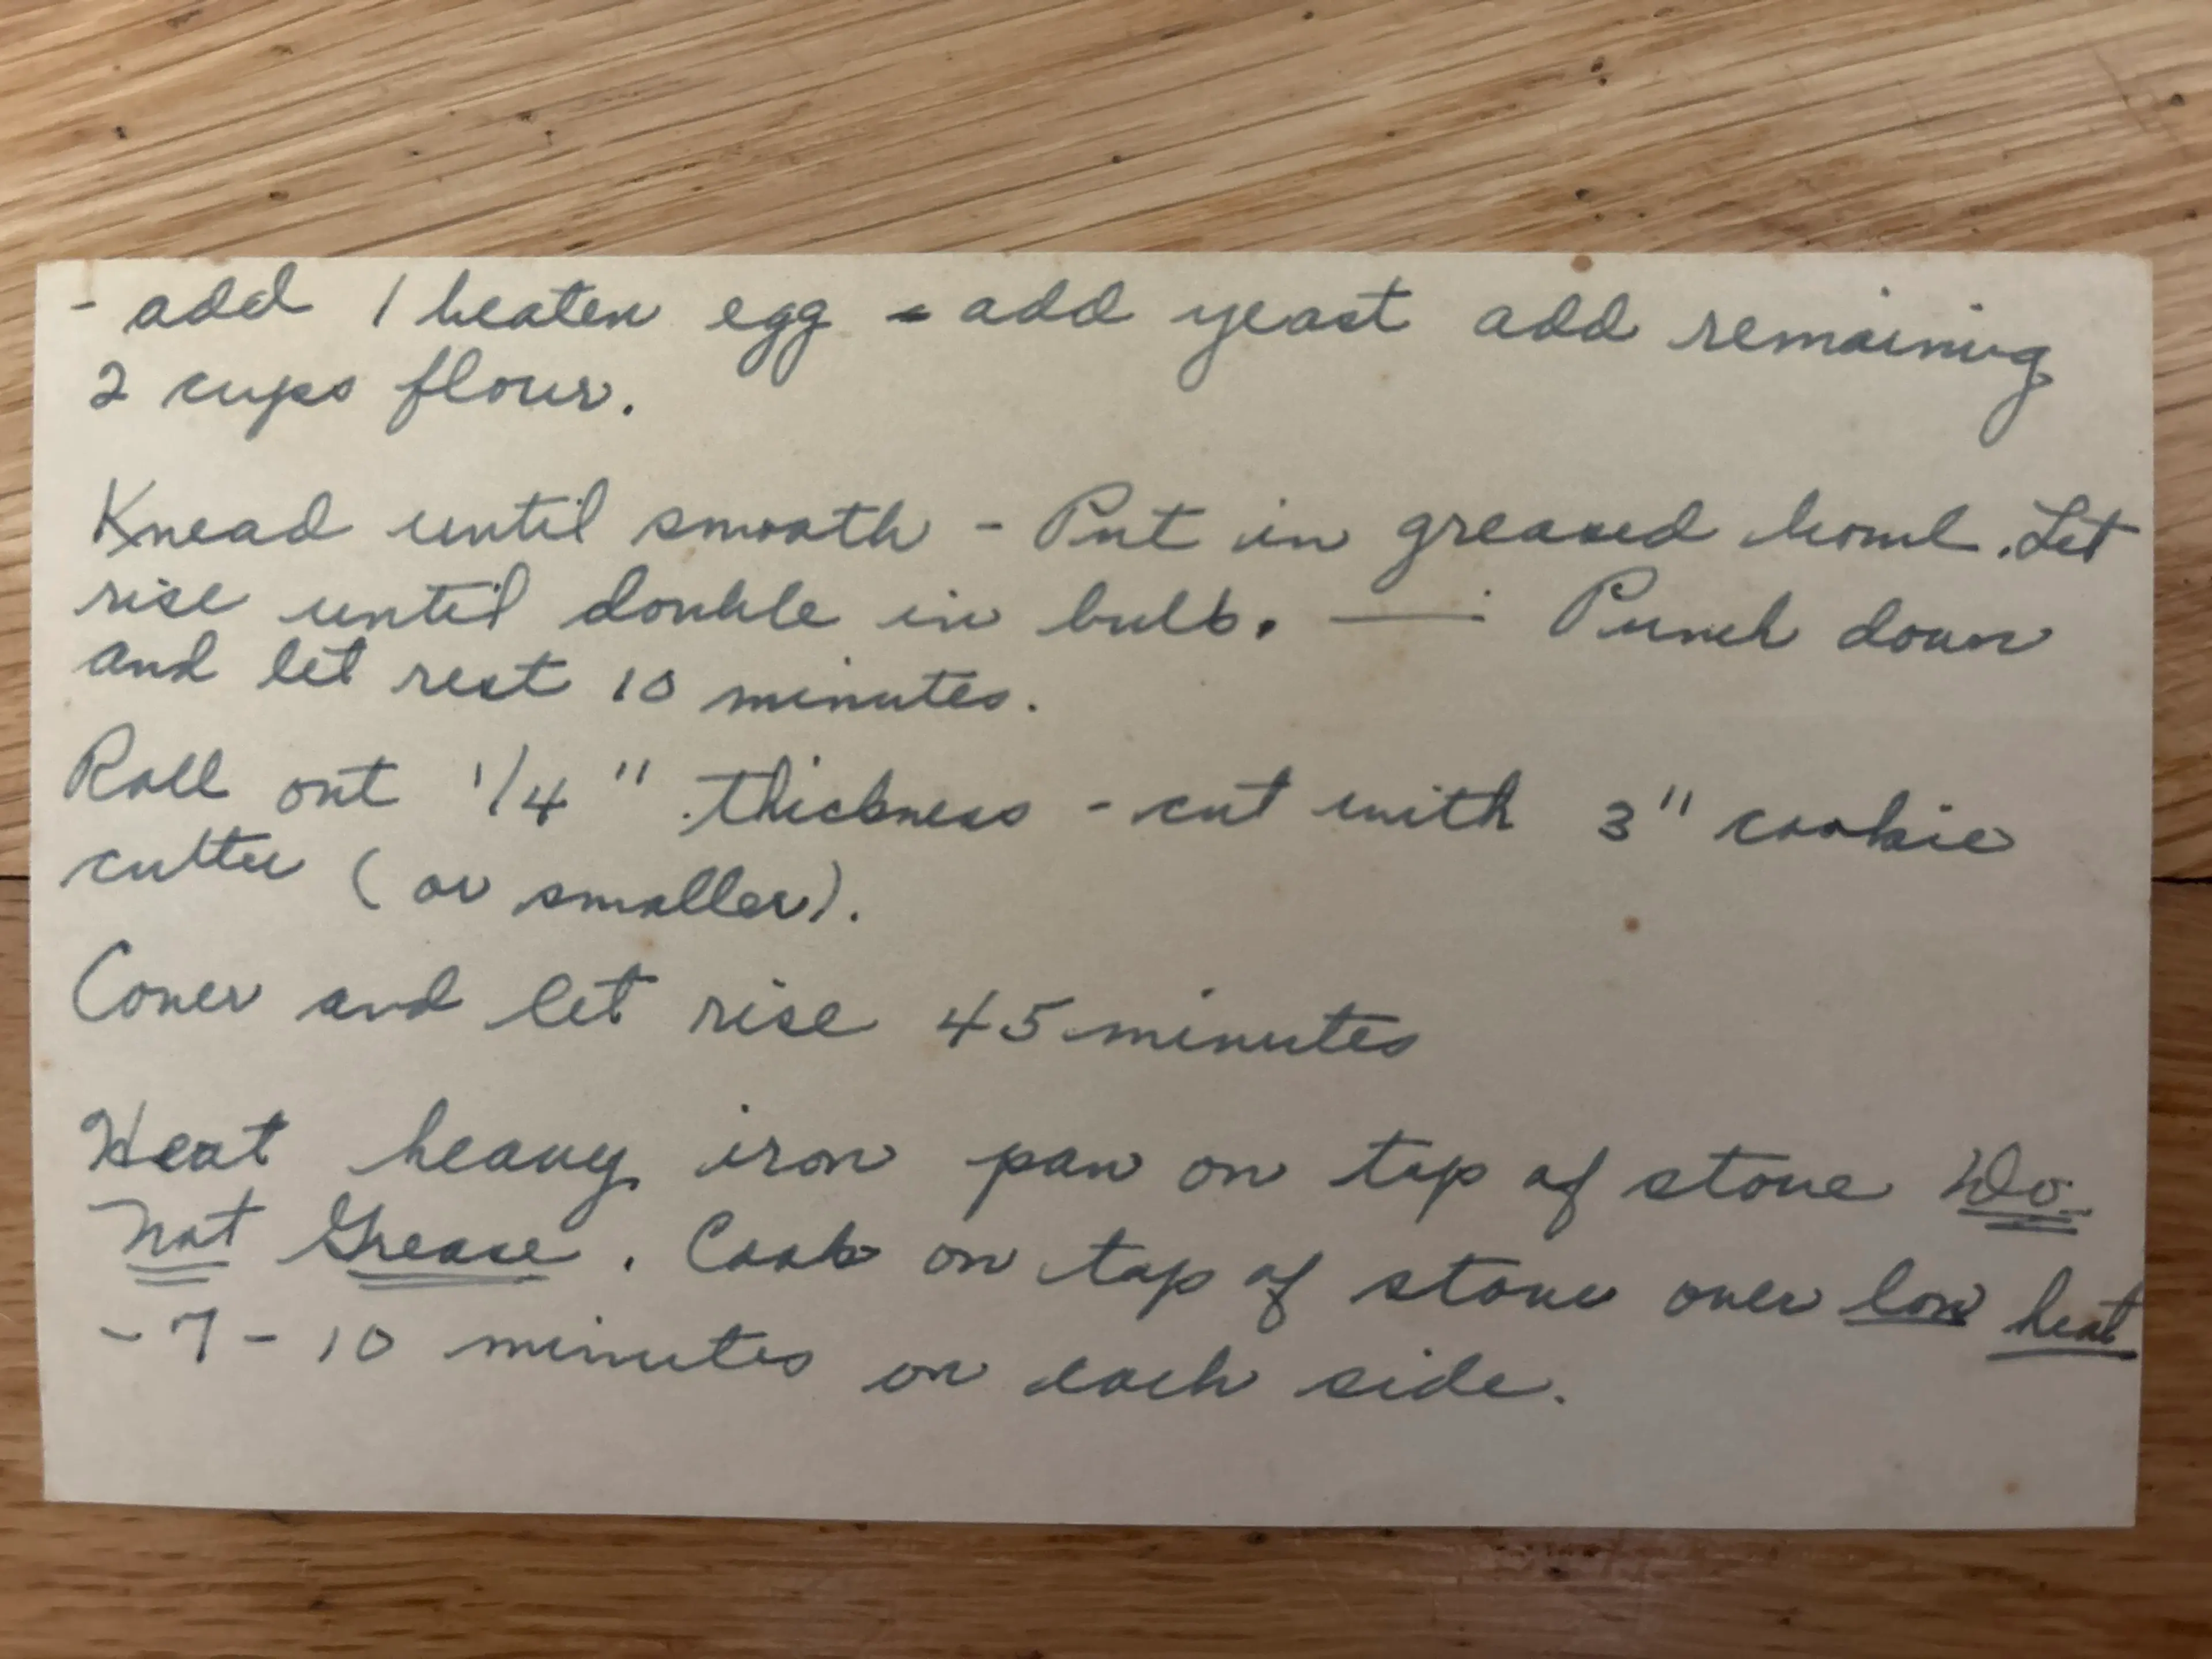 - add 1 beaten egg - add yeast add remaining
2 cups flour.
Knead until smooth - Put in greased bowl. Let
rise until double in bulk. — Punch down
and let rest 10 minutes.
Roll out 1/4" thickness - cut with 3" cookie
cutter (or smaller).
Cover and let rise 45 minutes
Heat heavy iron pan on top of stove Do
Not Grease. Cook on top of stove over low heat
- 7 - 10 minutes on each side.